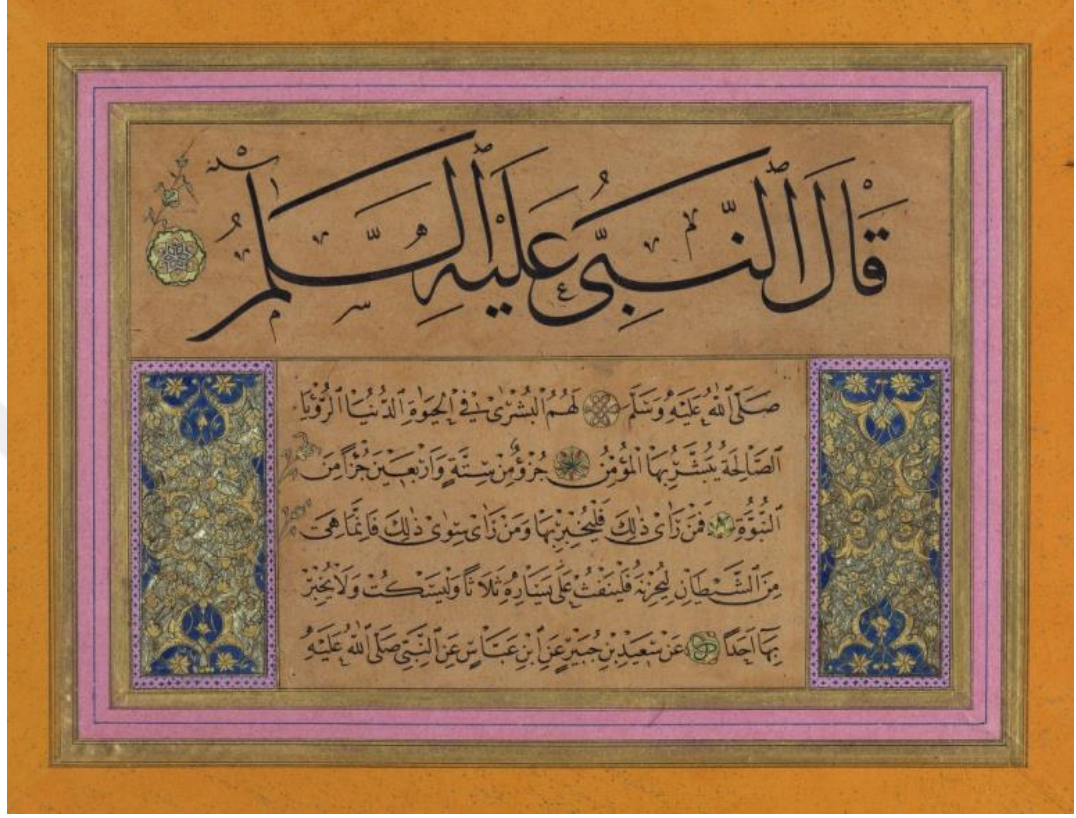 قَالَ ٱلنَّبِىُّ عَلَيْهِ ٱلسَّلَمُ
صَلَّى ٱللّٰهُ عَلَيْهِ وَسَلَّمَ لَهُمُ ٱلْبُشْرٰى فِى ٱلْحَيٰوةِ ٱلدُّنْيَا ٱلرُّؤْيَا
ٱلصَّالِحَةُ يُبَشَّرُ بِهَا ٱلْمُؤْمِنُ جُزْؤٌ مِنْ سِتَّةٍ وَاَرْبَعِينَ جُزْأً مِنَ
ٱلنُّبُوَّةِ فَمَنْ رَاٰى ذٰلِكَ فَلْيُخْبِرْ بِهَا وَمَنْ رَاٰى سِوٰى ذٰلِكَ فَاِنَّمَا هِىَ
مِنَ ٱلشَّيْطَانِ لِيُحْزِنَهُ فَلْيَنْفُثْ عَلٰى يَسَارِهِ ثَلَاثًا وَلْيَسْكُتْ وَلَا يُخْبِرْ
بِهَا اَحَدًا عَنْ سَعِيدِ بْنِ جُبَيْرٍ عَنِ ابْنِ عَبَّاسٍ عَنِ ٱلنَّبِىِّ صَلَّى ٱللّٰهُ عَلَيْهِ